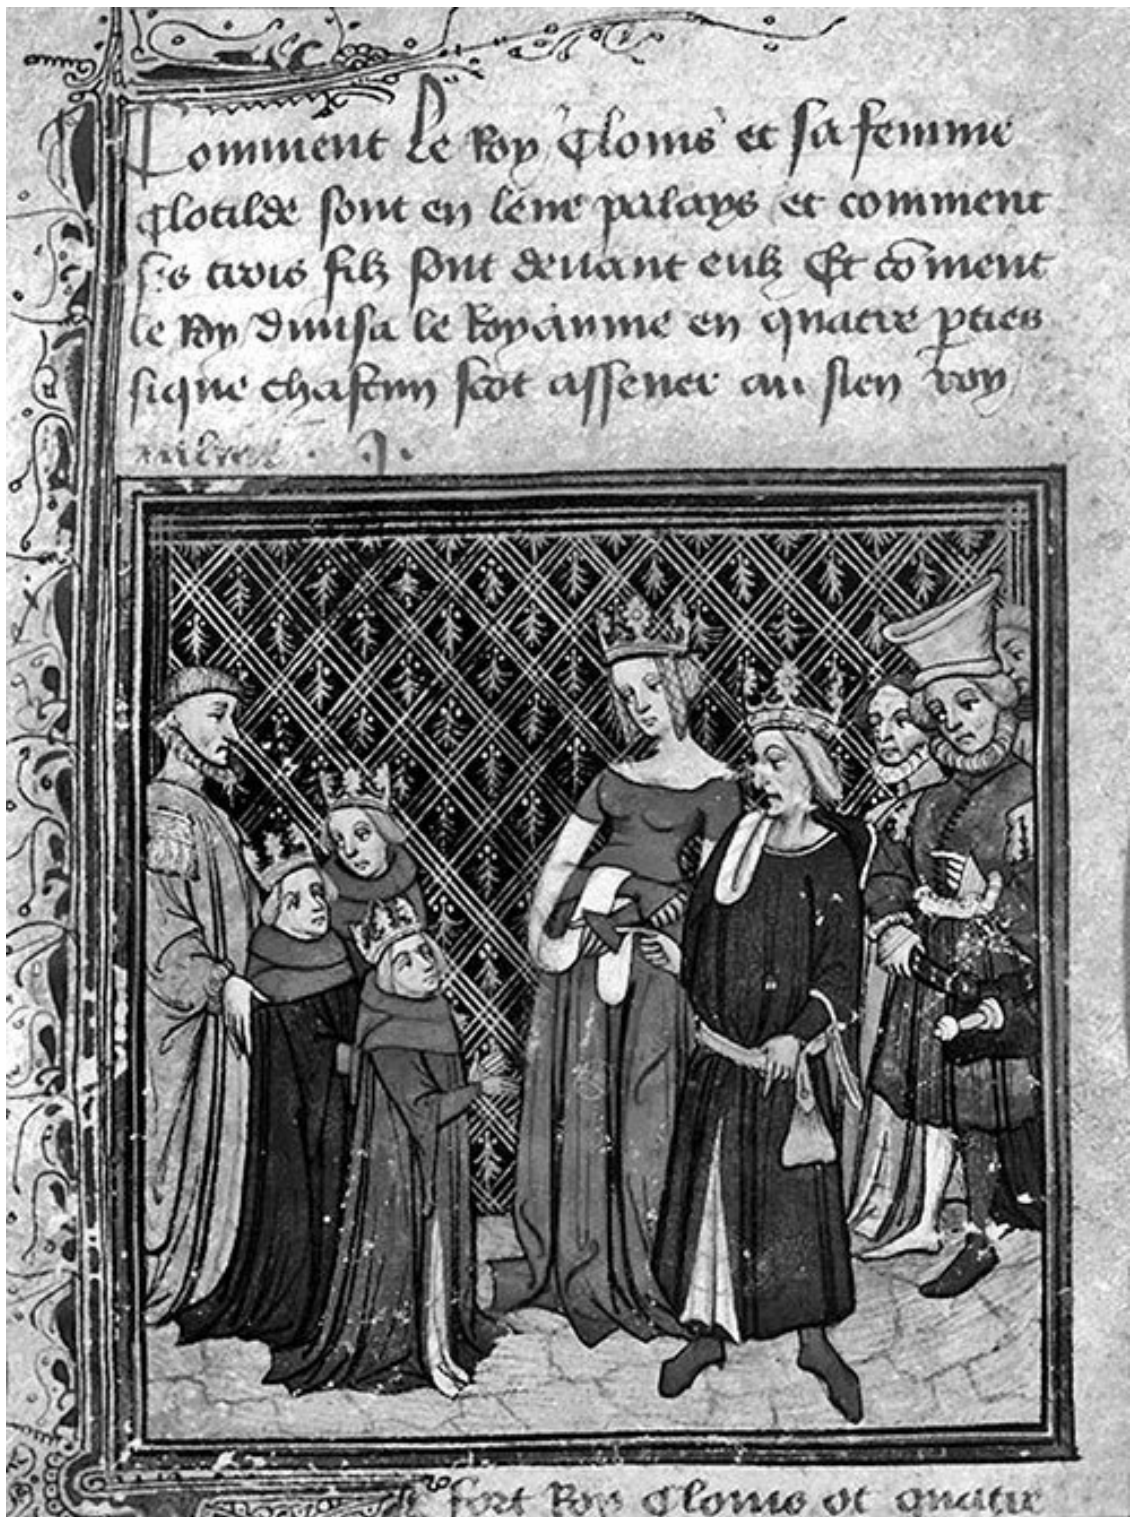 Comment Le Roy Clouis et sa femme
Clotilde sont en leur palays et comment
ses trois filz sont deuant eulz Et cōment
le Roy diuisa le Royaume en quatre pties
sique chascun scot assener au sien roy
fort Roy Clouis ot quatre